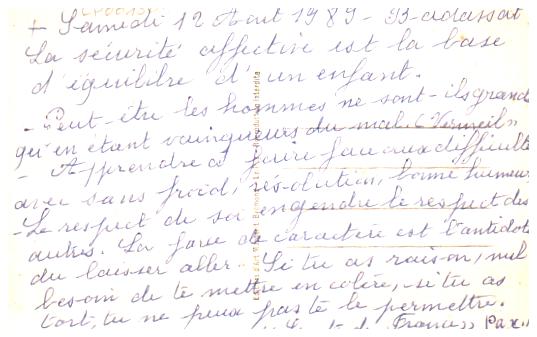 + Samedi 12 Août 1989 - Badassat
La sécurité affective est la base
d'équilibre d'un enfant.
- Peut-être les hommes ne sont-ils grands
qu'en étant vainqueurs du mal. (Verneuil)
- Apprendre à faire face aux difficultés
avec sang froid, résolution, bonne humeur
- Le respect de soi engendre le respect des
autres. La force de caractère est l'antidote
du laisser aller. Si tu as raison, nul
besoin de te mettre en colère, si tu as
tort, tu ne peux pas te le permettre.
France" Pax.